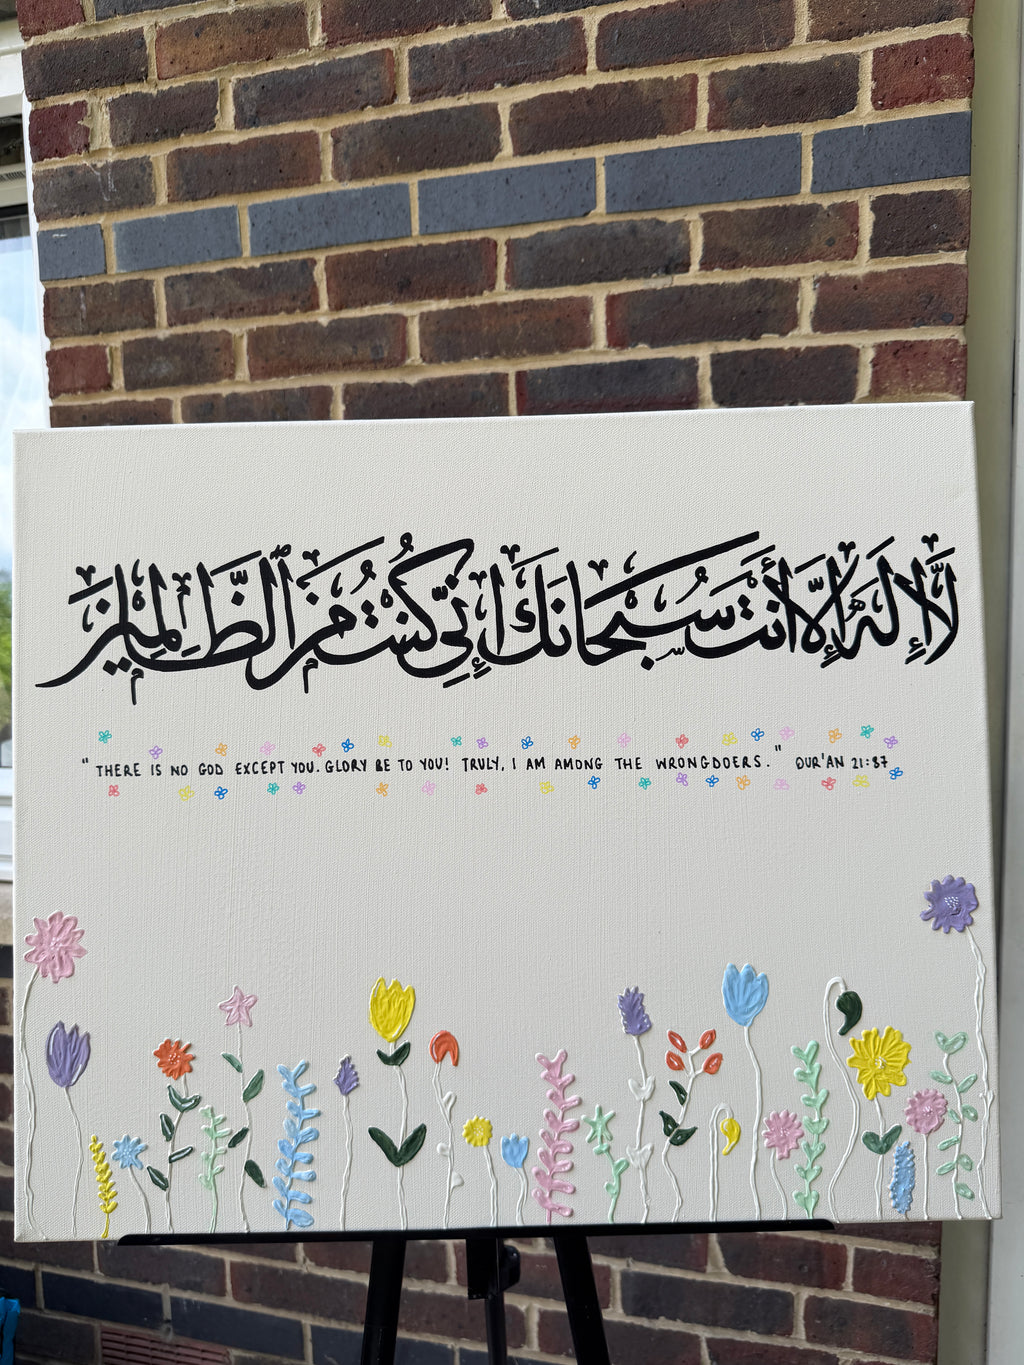 لَّا إِلَٰهَ إِلَّا أَنتَ سُبْحَانَكَ إِنِّي كُنتُ مِنَ الظَّالِمِينَ
" THERE IS NO GOD EXCEPT YOU. GLORY BE TO YOU! TRULY, I AM AMONG THE WRONGDOERS. " QUR'AN 21:87